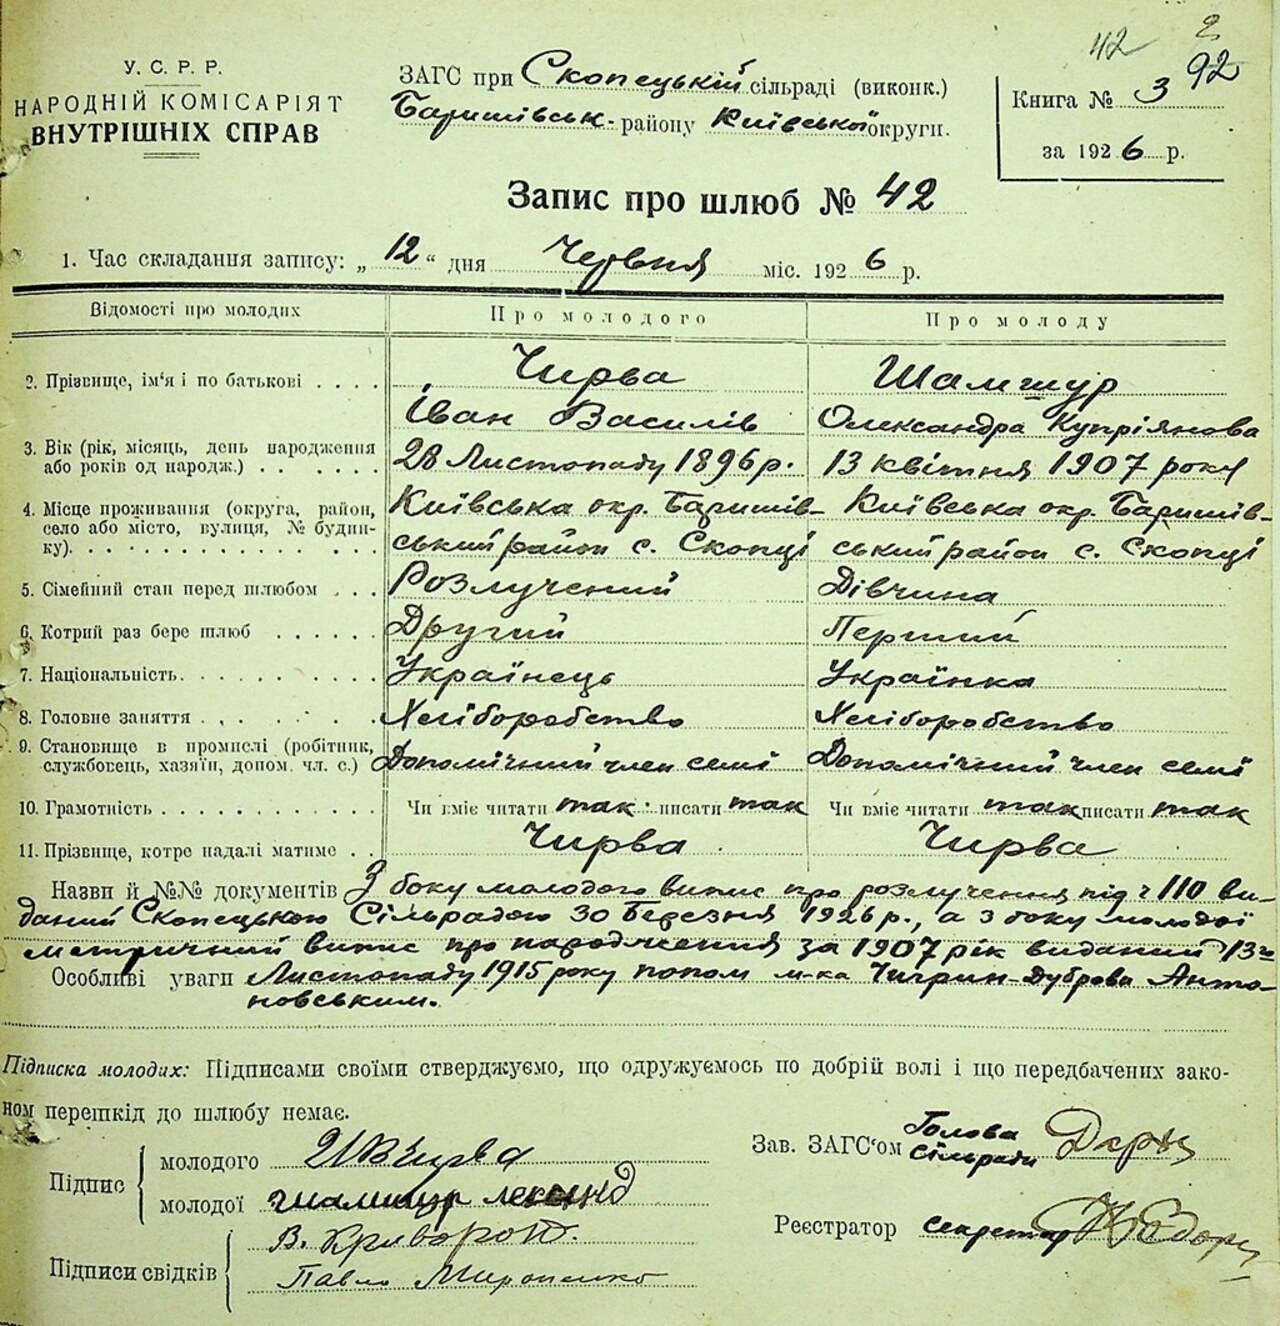 42
2
92
У. С. Р. Р.
НАРОДНІЙ КОМІСАРІЯТ
ВНУТРІШНІХ СПРАВ
ЗАГС при Скопецькій сільраді (виконк.)
Баришівськ. району Київської округи.
Книга № 3
за 1926 р.
Запис про шлюб № 42
1. Час складання запису: „12“ дня Червня міс. 1926 р.
Відомості про молодих Про молодого Про молоду
2. Прізвище, ім‘я і по батькові . . . . Чирва Шамшур
Іван Василів Олександра Купріянова
3. Вік (рік, місяць, день народження або років од народж.) . . . . . . 28 Листопаду 1896 р. 13 квітня 1907 року
4. Місце проживання (округа, район, Київська окр. Баришів- Київська окр. Баришів-
село або місто, вулиця, № будин-
ку). . . . . . . . . . . . ський район с. Скопці ський район с. Скопці
5. Сімейний стан перед шлюбом . . . Розлучений Дівчина
6. Котрий раз бере шлюб . . . . . . Другий Перший
7. Національність. . . . . . . . . . Українець Українка
8. Головне заняття . . . . . . Хліборобство Хліборобство
9. Становище в промислі (робітник,
службовець, хазяїн, допом. чл. с.) Допомічний член семї Допомічний член семї
10. Грамотність . . . . . . . . . . . Чи вміє читати так писати так Чи вміє читати так писати так
11. Прізвище, котре надалі матиме . . Чирва Чирва
Назви й №№ документів З боку молодого випис про розлучення під ч 110 ви-
даний Скопецькою Сільрадою 30 Березня 1926 р., а з боку молодої
метричний випис про народження за 1907 рік виданий 13го
Особливі уваги Листопаду 1915 року попом м-ка Чигрин-Дуброва Анто-
новським.
Підписка молодих: Підписами своїми стверджуємо, що одружуємось по добрій волі і що передбачених зако-
ном перешкід до шлюбу немає.
Підпис
молодого ИВЧирва
молодої Шамшур
Підписи свідків
В. Криворот.
Павло Мироненко
Зав. ЗАГС‘ом Голова
Сільради
Реєстратор Секретар